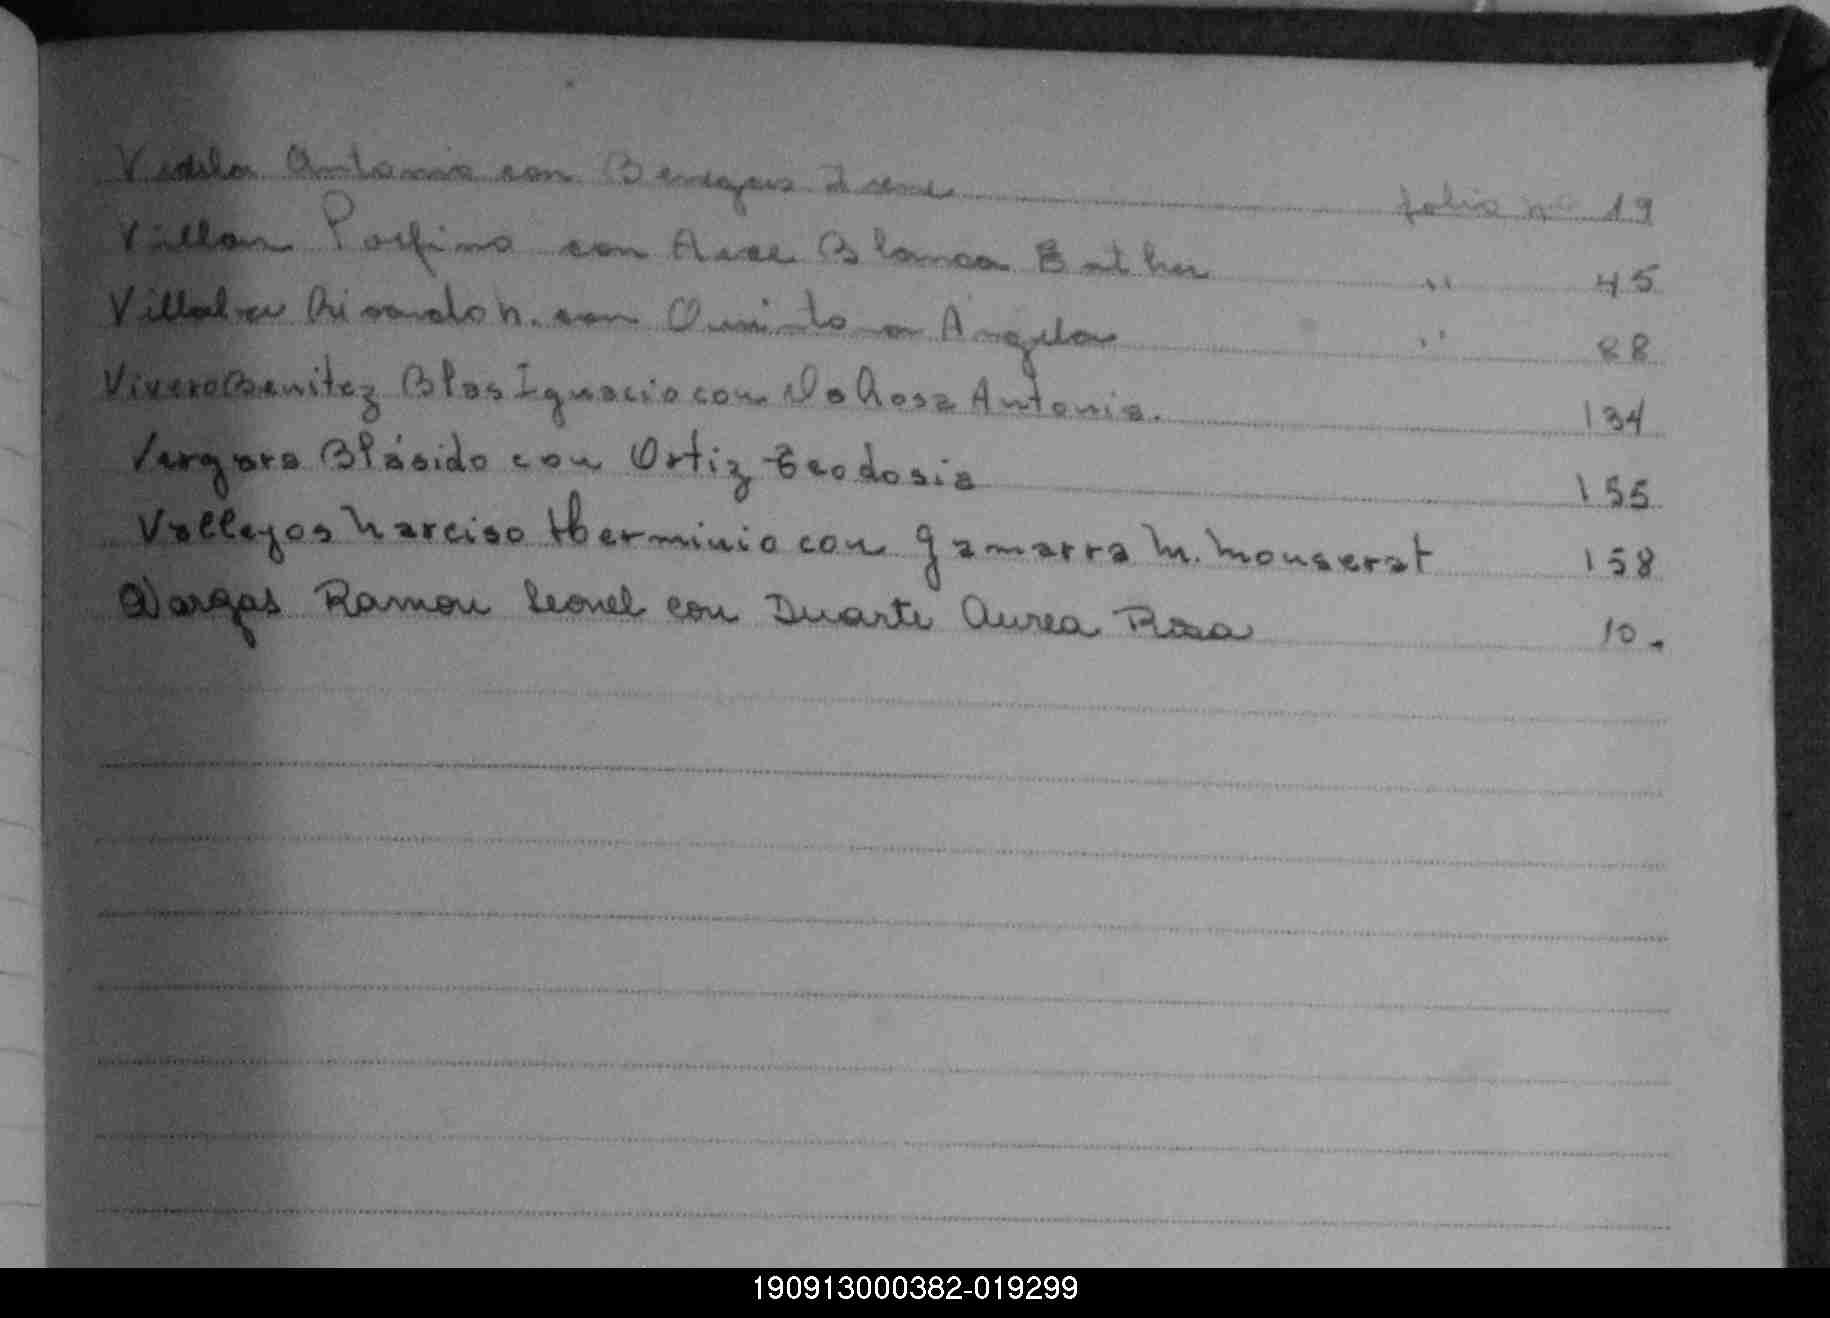 Antonio con Benegas Irene folio nº 19
Villar Porfirio con Arce Blanca Esther " 45
Villalva Ricardo n. con Quintana Angela " 88
Vivero Benitez Blas Ignacio con Rosa Antonia. 134
Vergara Plásido con Ortiz Teodosia 155
Vallejos Narciso Herminio con Gamarra M. Monserat 158
Vargas Ramon Leonel con Duarte Aurea Rosa 10.
190913000382-019299